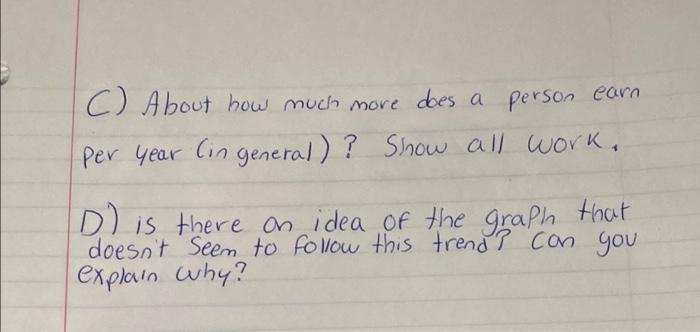 C) About how much more does a person earn
per year (in general)? Show all work.
D) is there an idea of the graph that
doesn't seem to follow this trend? Can you
explain why?